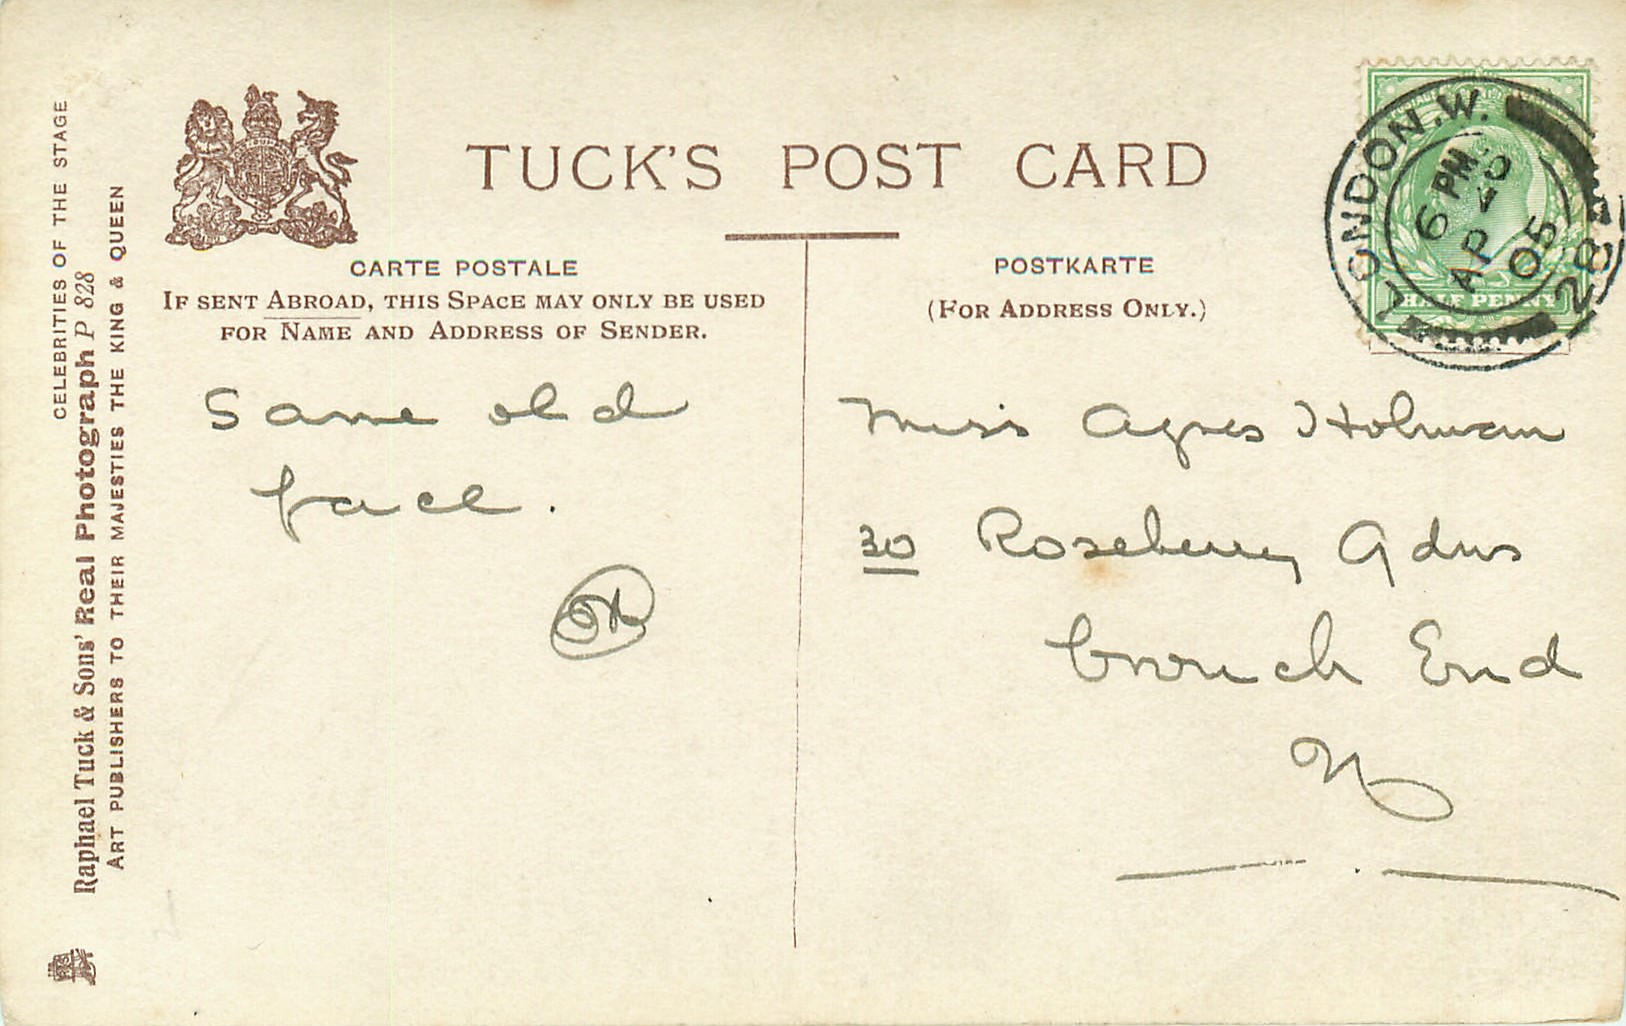 CELEBRITIES OF THE STAGE
Raphael Tuck & Sons' Real Photograph P 828
ART PUBLISHERS TO THEIR MAJESTIES THE KING & QUEEN
TUCK'S POST CARD
CARTE POSTALE
IF SENT ABROAD, THIS SPACE MAY ONLY BE USED
FOR NAME AND ADDRESS OF SENDER.
POSTKARTE
(FOR ADDRESS ONLY.)
LONDON.W.
6 PM
AP
05
28
HALF PENNY
Same old
face.
Miss Agnes Holman
30 Roseberry Gdns
Crouch End
N